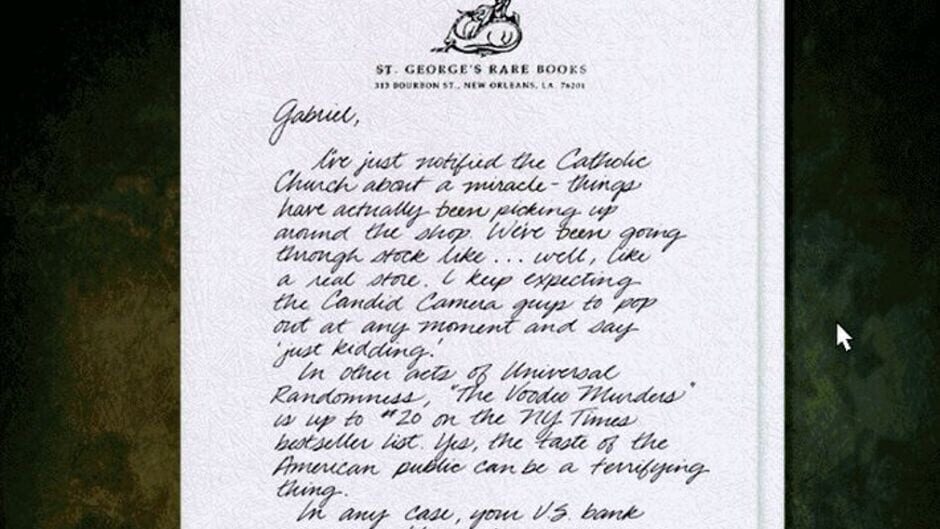 ST. GEORGE'S RARE BOOKS
313 BOURBON ST., NEW ORLEANS, LA. 76201
Gabriel,
I've just notified the Catholic
Church about a miracle - things
have actually been picking up
around the shop. We've been going
through stock like ... well, like
a real store. I keep expecting
the Candid Camera guys to pop
out at any moment and say
'just kidding.'
In other acts of Universal
Randomness, "The Voodoo Murders"
is up to #20 on the NY Times
bestseller list. Yes, the taste of the
American public can be a terrifying
thing.
In any case, your U.S. bank